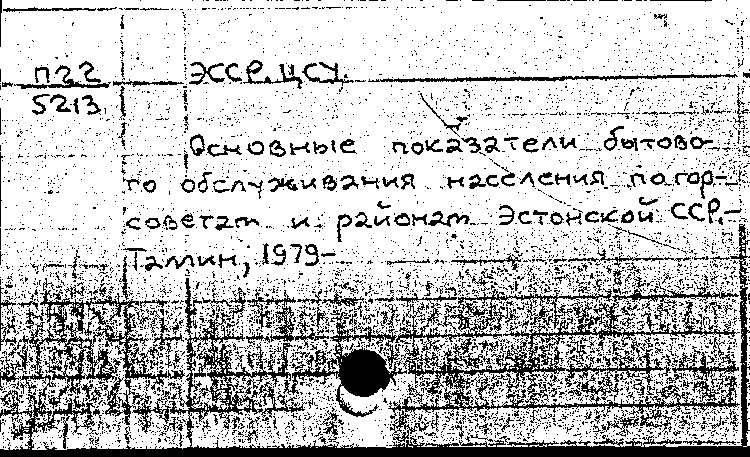 П22 ЭССР. ЦСУ.
5213
Основные показатели бытово-
го обслуживания населения по гор-
советам и районам Эстонской ССР.-
Таллин, 1979-